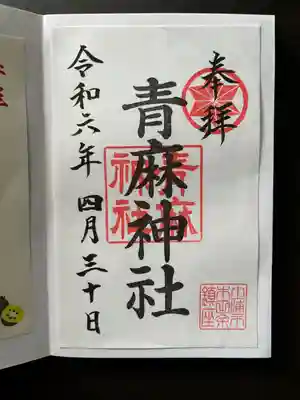 奉拝
青麻神社
青麻
神社
令和六年 四月三十日
鎮座